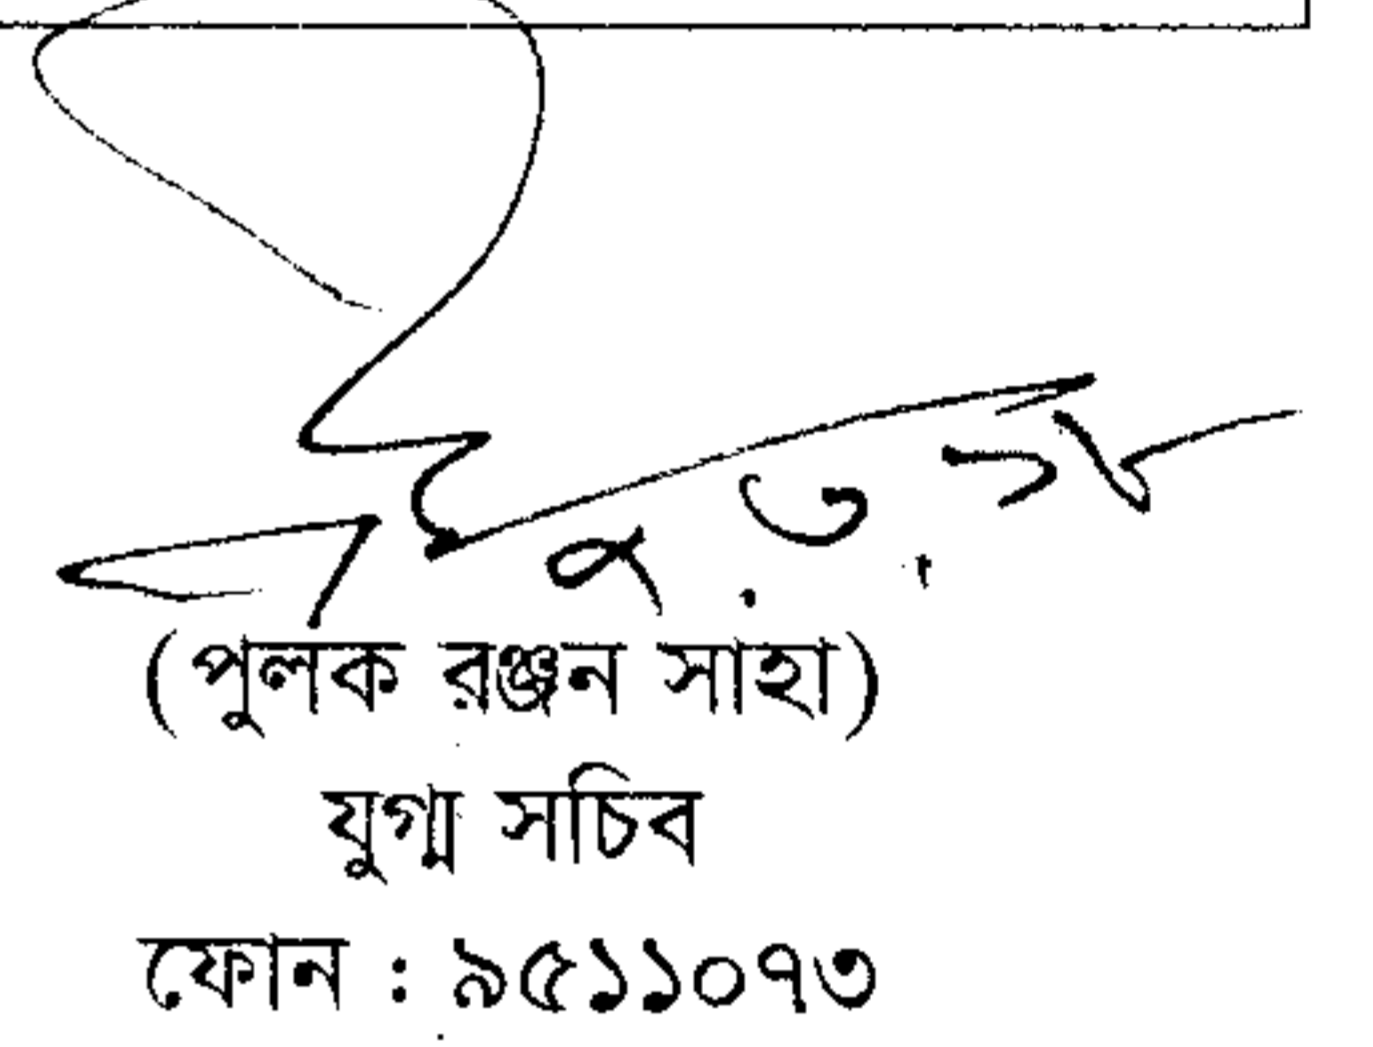 (পুলক রঞ্জন সাহা)
যুগ্ম সচিব
ফোন : ৯৫১১০৭৩